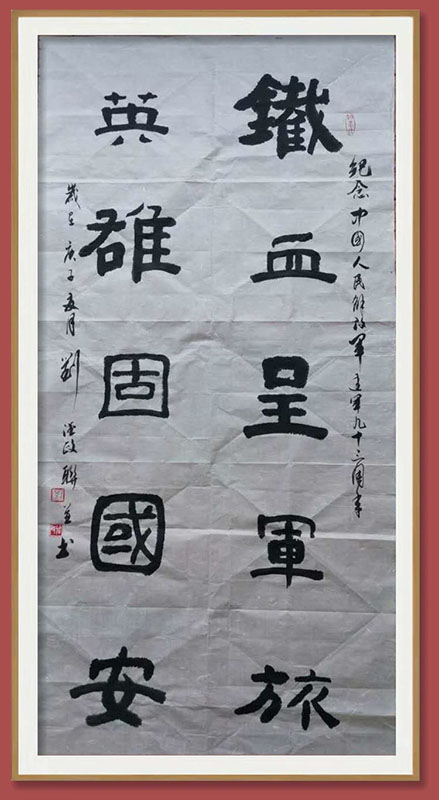 紀念中國人民解放軍建軍九十三周年
鐵血呈軍旅
英雄固國安
歲在庚子夏月劉政聯並书